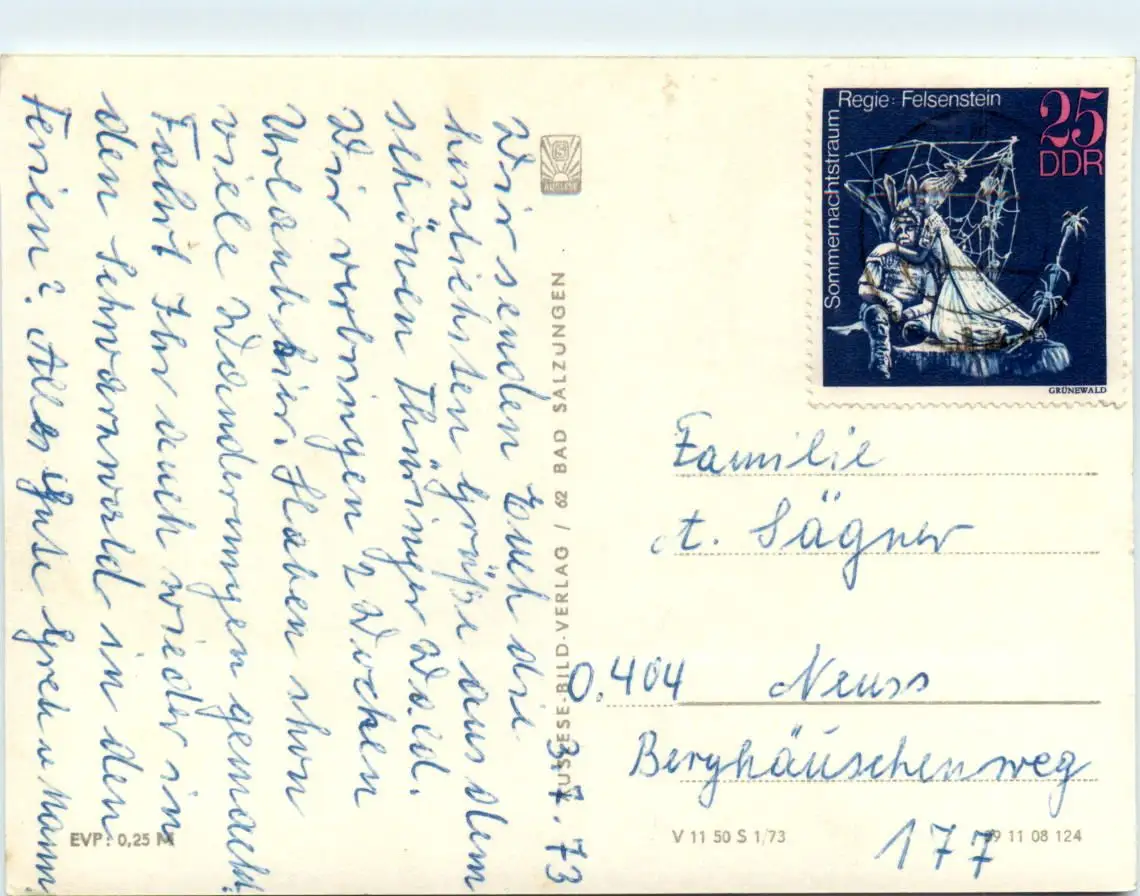 Wir senden Euch die
herzlichsten Grüße aus dem
schönen Thüringer Wald.
Wir verbringen 2 Wochen
Urlaub hier Haben schon
viele Wanderungen gemacht.
Fahrt Ihr auch wieder in
den Schwarzwald in den
Ferien? Alles Gute
3.7.73
EVP: 0,25 M
AUSLESE
AUSLESE-BILD-VERLAG / 62 BAD SALZUNGEN
Sommernachtstraum
Regie: Felsenstein
25
DDR
GRÜNEWALD
Familie
A. Sägner
0.404 Neuss
Berghäuschenweg
177
V 11 50 S 1/73
11 08 124